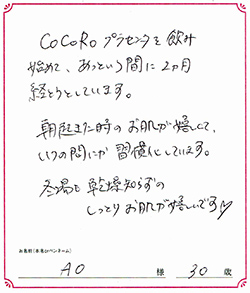 CoCoRo プラセンタを飲み
始めて、あっという間に2ヵ月
経とうとしています。
朝起きた時のお肌が嬉しくて、
いつの間にか習慣化しています。
冬場も乾燥知らずの
しっとりお肌が嬉しいです♡
お名前(本名orペンネーム)
AO 様 30歳